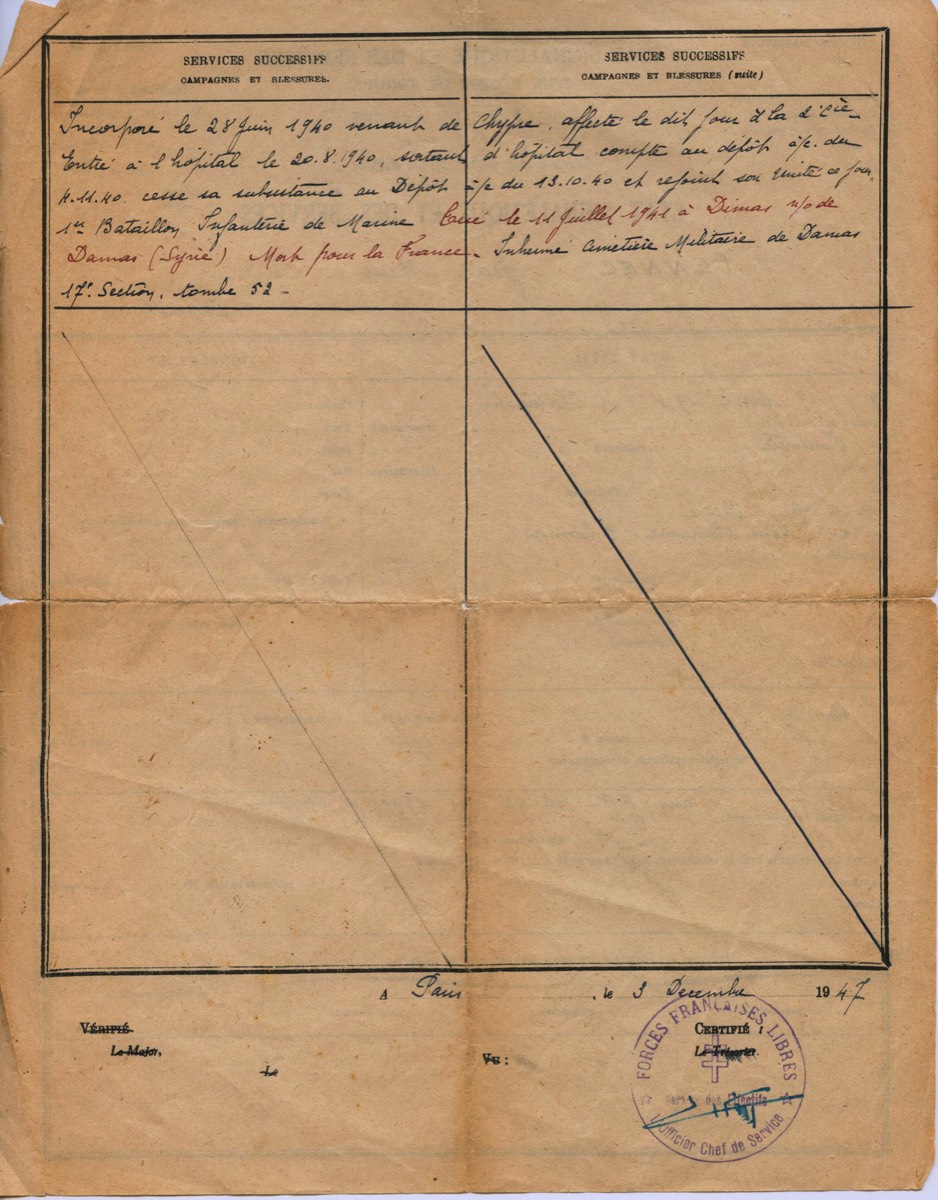 SERVICES SUCCESSIFS
CAMPAGNES ET BLESSURES.
SERVICES SUCCESSIFS
CAMPAGNES ET BLESSURES (suite)
Incorporé le 28 Juin 1940 venant de Chypre, affecté le dit jour à la 2e Cie
Entré à l'hôpital le 20.8.1940, sortant d'hôpital compte au dépôt à/c. du
4.11.40. cesse sa subsistance au Dépôt à/c du 13.10.40 et rejoint son Unité ce jour,
1er Bataillon Infanterie de Marine Tué le 11 Juillet 1941 à Dimas n/o de
Damas (Syrie) Mort pour la France. Inhumé Cimetière Militaire de Damas
17e. Section, tombe 52 -
A Paris, le 3 Decembre 1947
VÉRIFIÉ
Le Major,
Le
Vu :
CERTIFIÉ :
Le Trésorier
FORCES FRANÇAISES LIBRES
Service des Effectifs
L'Officier Chef de Service